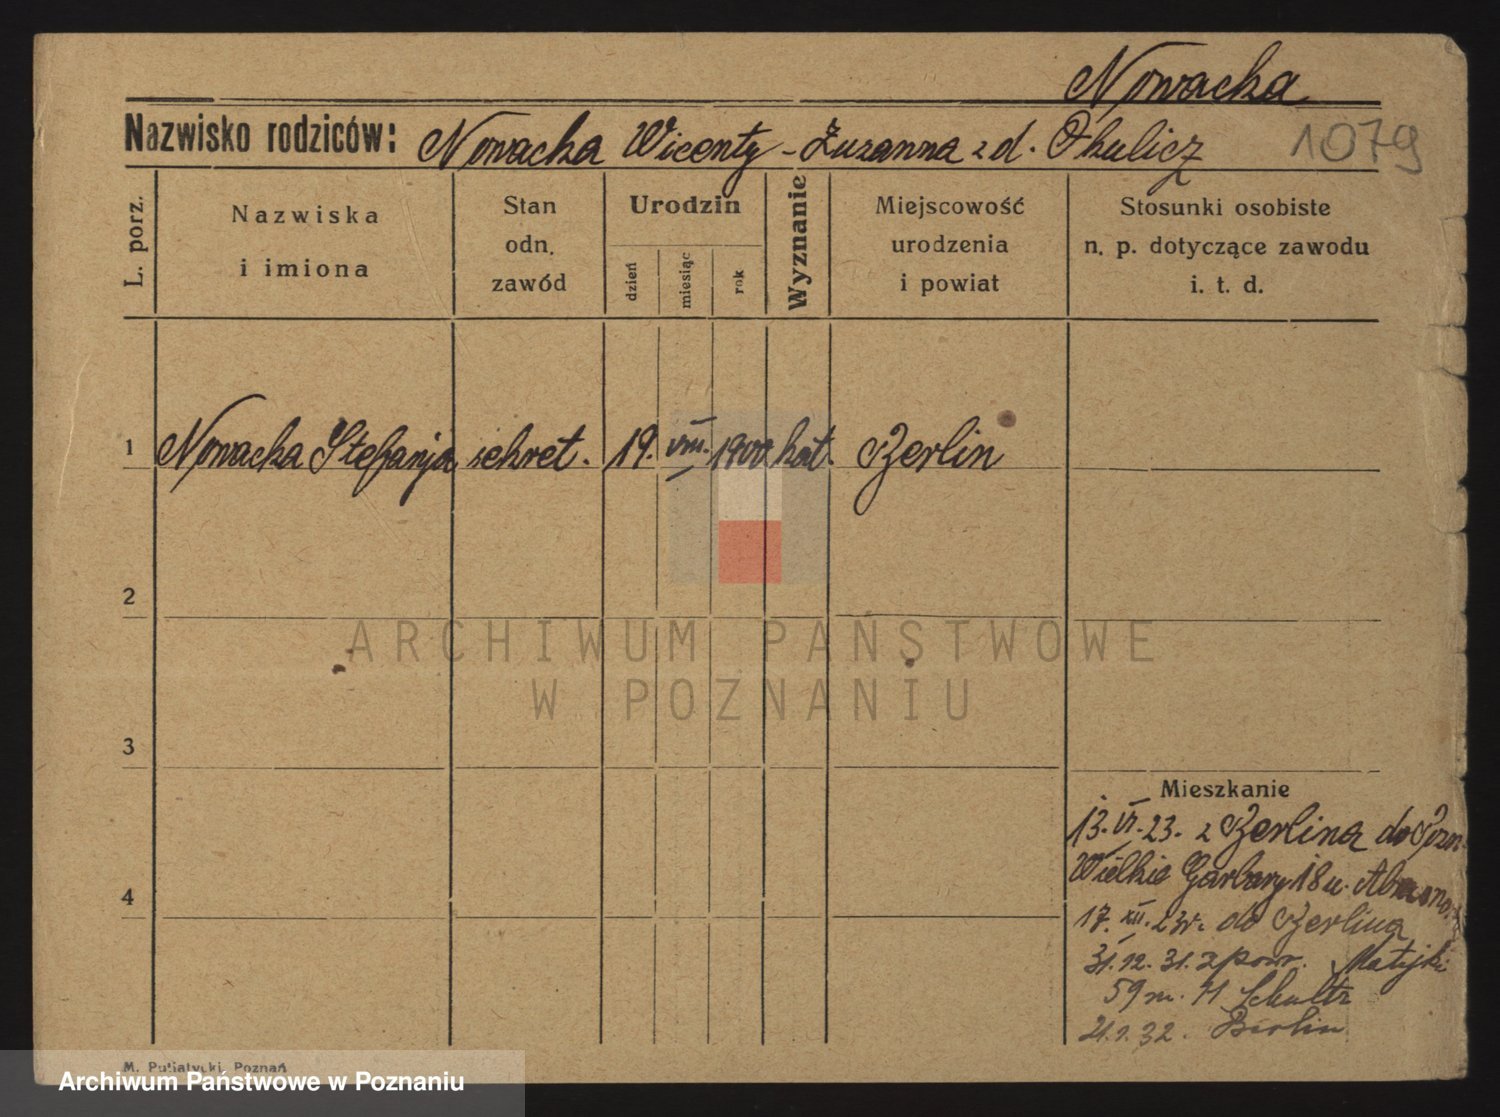 Nowacka
Nazwisko rodziców: Nowacka Wicenty - Zuzanna z d. Okulicz 1079
L. porz.
Nazwiska i imiona
Stan odn. zawód
Urodzin
dzień
miesiąc
rok
Wyznanie
Miejscowość urodzenia i powiat
Stosunki osobiste n. p. dotyczące zawodu i. t. d.
1 Nowacka Stefanja sekret. 19. VIII. 1900 kat. Berlin
2
ARCHIWUM PAŃSTWOWE
W POZNANIU
3
Mieszkanie
13. VI. 23. z Berlina do Pozn.
Wielkie Garbary 18 u.
4
17. XII. 23r. do Berlina
31.12.31. z powr. Matejki
59 m. 11 Schultz
21.1.32. Berlin
M. Putiatycki, Poznań
Archiwum Państwowe w Poznaniu